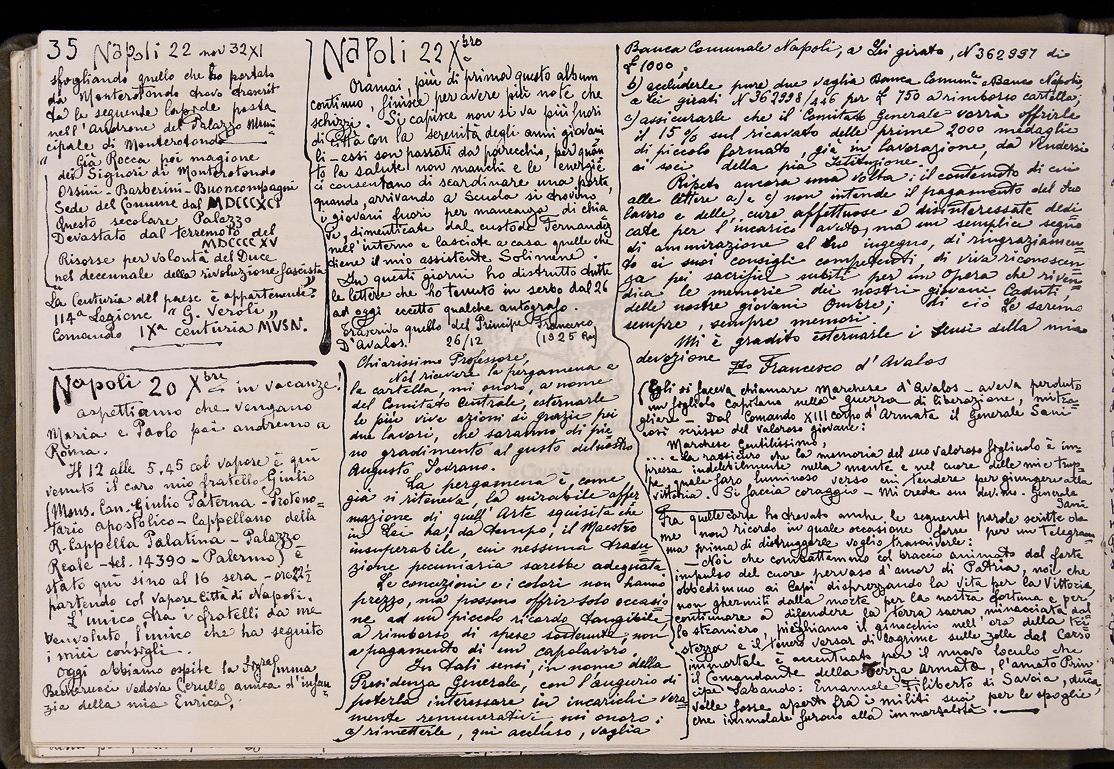 35 Napoli 22 nov 32 XI
sfogliando quello che ho portato
da Monterotondo trovo trascrit
ta la seguente lapide posta
nell'Androne del Palazzo Muni
cipale di Monterotondo
"Già Rocca poi magione
dei Signori di Monterotondo
Orsini - Barberini - Buoncompagni
Sede del Comune dal MDCCCXCI
Questo secolare Palazzo
Devastato dal terremoto del
MDCCCCXV
Risorse per volontà del Duce
nel decennale della rivoluzione fascista"
La Centuria del paese è appartenente:
114ª Legione "G. Veroli"
Comando IXª centuria MVSN.
Napoli 20 Xbre in vacanze.
aspettiamo che vengano
Maria e Paolo poi andremo a
Roma.
Il 12 alle 5.45 col vapore è qui
venuto il caro mio fratello Giulio
(Mons. Can. Giulio Paterna - Protono-
tario apostolico - Cappellano della
R. Cappella Palatina - Palazzo
Reale - tel. 14390 - Palermo) è
stato qui sino al 16 sera - ore 22½
partendo col vapore Città di Napoli.
L'unico tra i fratelli da me
benvoluto l'unico che ha seguito
i miei consigli.
Oggi abbiamo ospite la Sigra Emma
vedova Cerullo amica d'infan
zia della mia Enrica.
Napoli 22 Xbre
Oramai, più di prima questo album
continuo, finisce per avere più note che
schizzi. Si capisce non si va più fuori
di Città con la serenità degli anni giovani
li - essi son passati da parecchio, per quan
to la salute non manchi e le energie
ci consentano di scardinare una porta
quando, arrivando a Scuola si trovino
i giovani fuori per mancanza di chia
ve, dimenticate dal custode Fernandez
nell'interno e lasciate a casa quelle che
tiene il mio assistente Solimene.
In questi giorni ho distrutto tutte
le lettere che ho tenuto in serbo dal 26
ad oggi eccetto qualche autografo
Trascrivo quello del Principe Francesco
D'Avalos. 26/12 (1925
Chiarissimo Professore,
Nel ricevere la pergamena e
la cartella, mi onoro, a nome
del Comitato Centrale, esternarle
le più vive azioni di grazie pei
due lavori, che saranno di pie
no gradimento al gusto del nostro
Augusto Sovrano.
La pergamena è, come
già si riteneva, la mirabile affer
mazione di quell'Arte squisita che
in Lei ha, da tempo, il Maestro
insuperabile, cui nessuna tradu
zione pecuniaria sarebbe adeguata.
Le concezioni e i colori non hanno
prezzo, ma possono offrir solo occasio
ne ad un piccolo ricordo tangibile
a rimborso di spese sostenute, non
a pagamento di un capolavoro
In tali sensi, in nome della
Presidenza Generale, con l'augurio di
poterla interessare in incarichi vera
mente remunerativi, mi onoro:
a) rimetterle, qui accluso, vaglia
Banca Comunale Napoli, a Lei girato, N 362997 di
£ 1000;
b) accluderle pure due vaglia Banca Comun.e Banco Napoli,
a Lei girati N 362998/446 per £ 750 a rimborso cartella;
c) assicurarle che il Comitato Generale vorrà offrirle
il 15% sul ricavato delle prime 2000 medaglie
di piccolo formato già in lavorazione, da vendersi
ai soci della pia Istituzione.
Ripeto ancora una volta: il contenuto di cui
alle lettere a) e c) non intende il pagamento del Suo
lavoro e delle cure affettuose e disinteressate dedi
cate per l'incarico avuto, ma un semplice segno
di ammirazione al Suo ingegno, di ringraziamen
to ai suoi consigli competenti, di viva riconoscen
za pei sacrifici subiti per un'opera che riven
dica le memorie dei nostri giovani Caduti,
delle nostre giovani Ombre; di ciò Le saremo
sempre, sempre memori.
Mi è gradito esternarle i sensi della mia
devozione Fto Francesco d'Avalos
(Egli si faceva chiamare Marchese d'Avalos - aveva perduto
un figliolo Capitano nella guerra di liberazione, mitra-
gliere - Dal Comando XIII corpo d'Armata il Generale Sani
così scrisse del valoroso giovane:
Marchese Gentilissimo,
... e La rassicuro che la memoria del suo valoroso figliuolo è im-
pressa indelebilmente nella mente e nel cuore delle mie trup-
pe quale faro luminoso verso cui tendere per giungere alla
vittoria. Si faccia coraggio - Mi creda suo dev.mo. Generale
Sani
Fra quelle carte ho trovato anche le seguenti parole scritte da
me non ricordo in quale occasione, forse per un telegram
ma prima di distruggerle voglio trascriverle:
- Noi che combattemmo col braccio animato dal forte
impulso del cuore pervaso d'amor di Patria, noi che
obbedimmo ai capi disprezzando la vita per la Vittoria
non ghermiti dalla morte per la nostra fortuna e per
continuare a difendere la terra sacra minacciata dal
lo straniero, pieghiamo il ginocchio nell'ora della tri
stezza e il tenero versar di lagrime sulle zolle del Carso
immortale è accentuato per il nuovo loculo che
il Comandante della Terza Armata, l'amato Prin
cipe Sabaudo: Emanuele Filiberto di Savoia, duca,
volle fosse aperto fra i militi suoi per le spoglie,
che immolate furono alla immortalità.